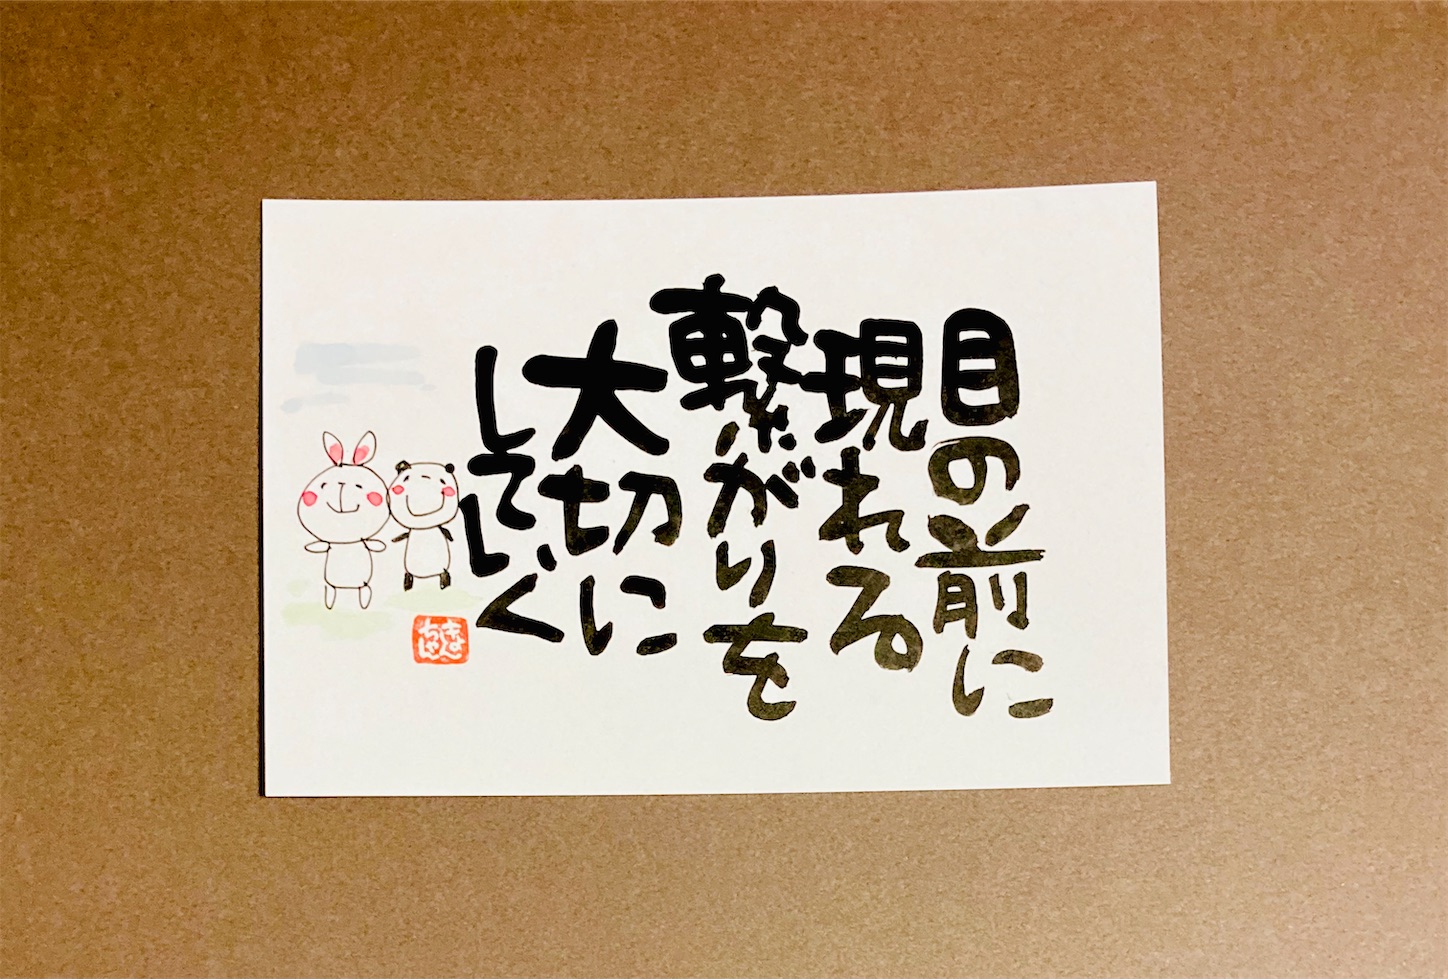 目の前に
現れる
繋がりを
大切に
していく
きょん
ちゃん